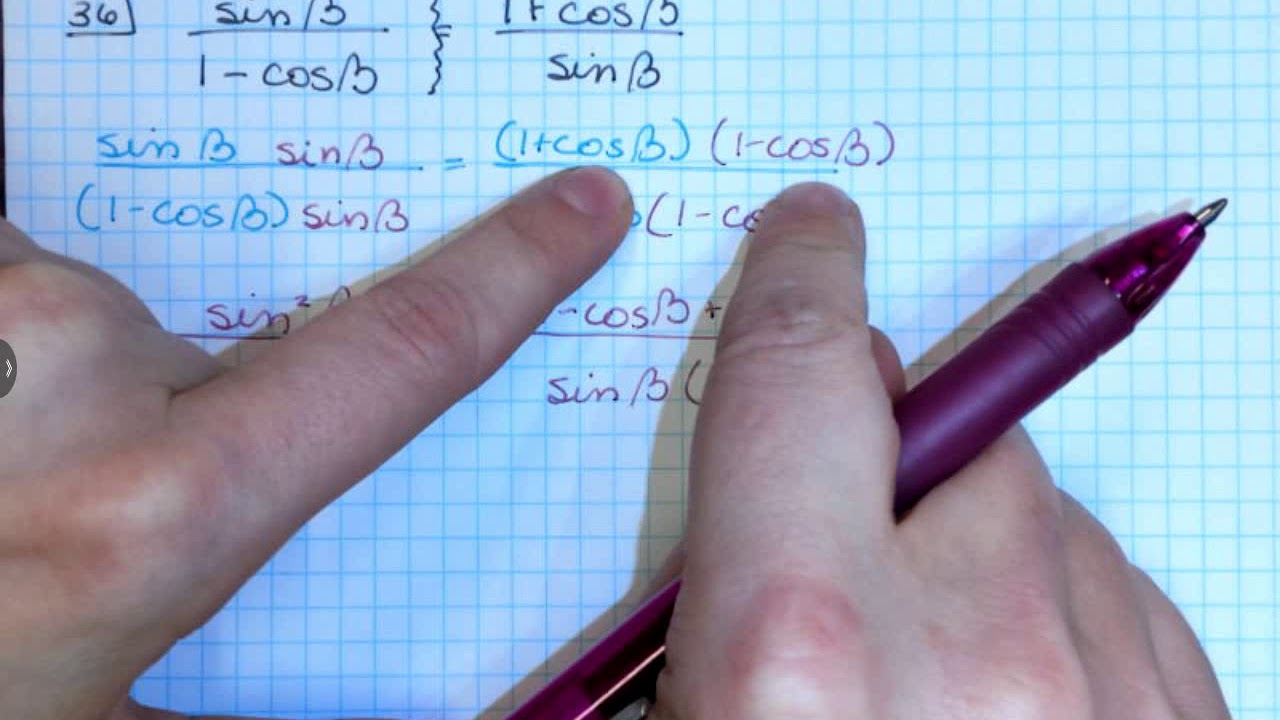 36] sin β } 1 + cos β
1 - cos β } sin β
sin β sin β = (1+cos β) (1-cos β)
(1-cos β) sin β (1 -
sin² - cos β +
sin β (